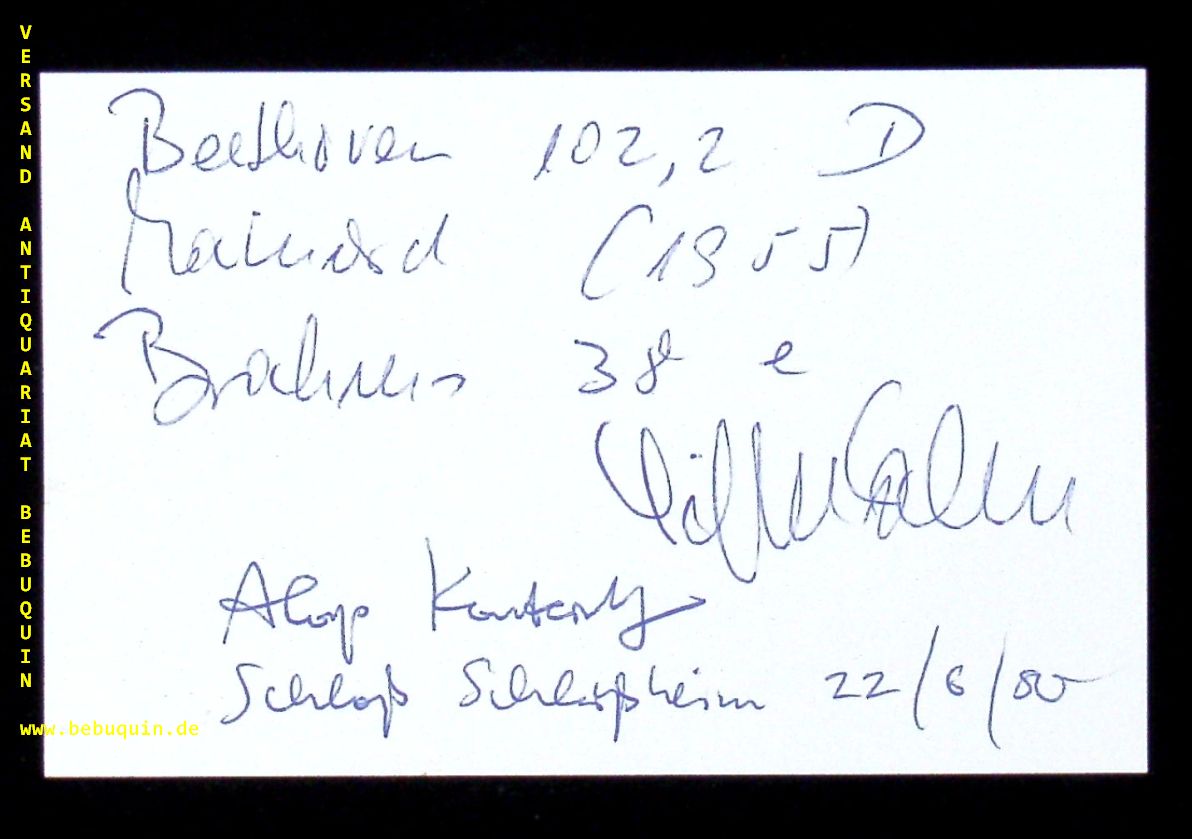 VERSAND ANTIQUARIAT BEBUQUIN
Beethoven 102,2 D
Mainardi (1955)
Brahms 38 e
Aloys Kontarsky
Schloß Schleißheim 22/6/80
www.bebuquin.de